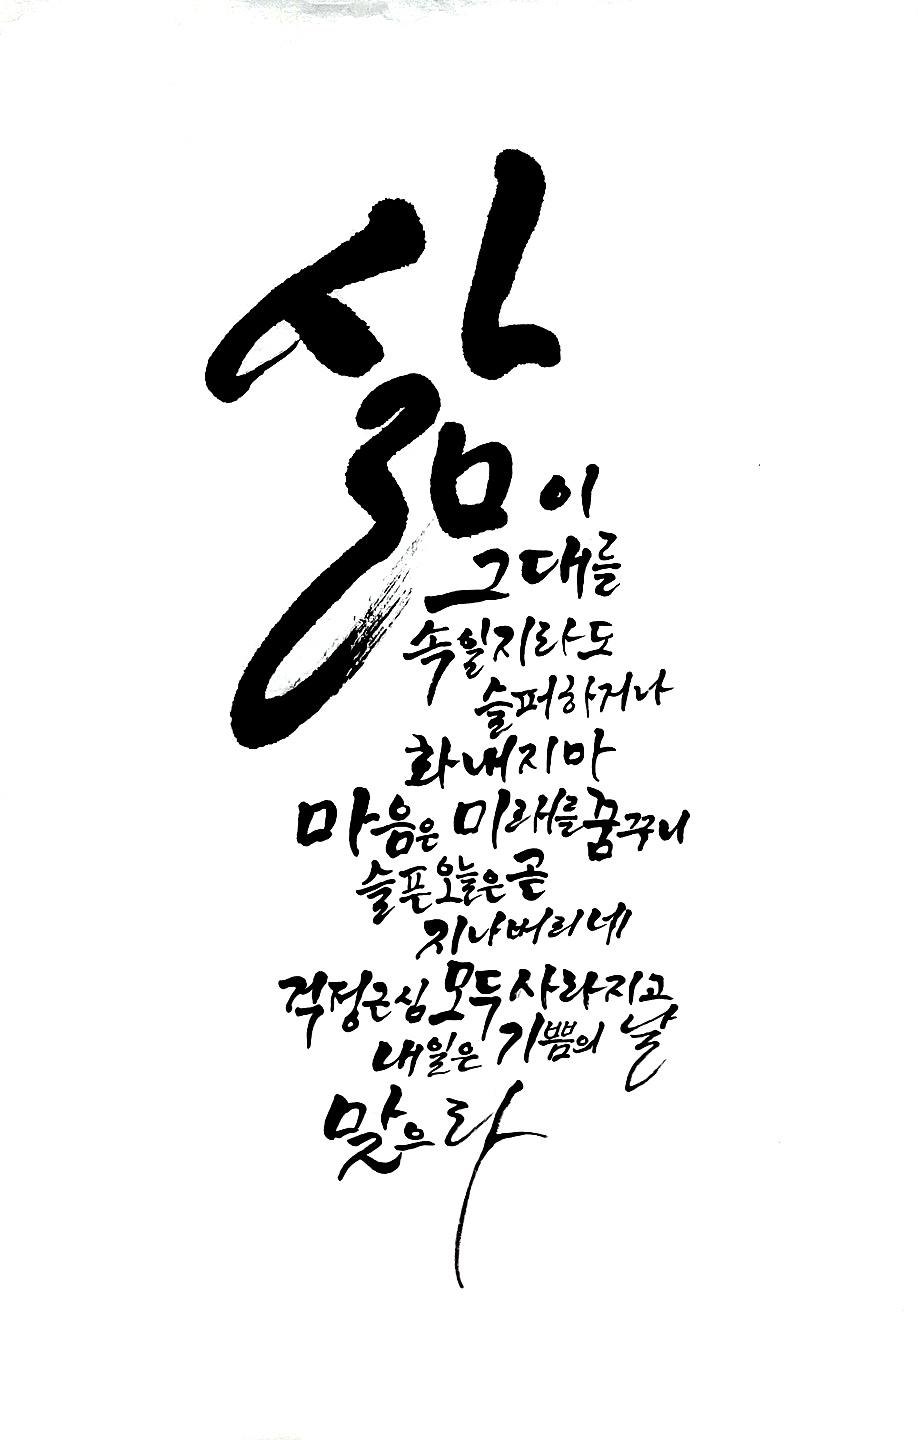 삶이
그대를
속일지라도
슬퍼하거나
화내지마
마음은 미래를 꿈꾸니
슬픈 오늘은 곧
지나버리네
걱정근심 모두 사라지고
내일은 기쁨의 날
맞으라